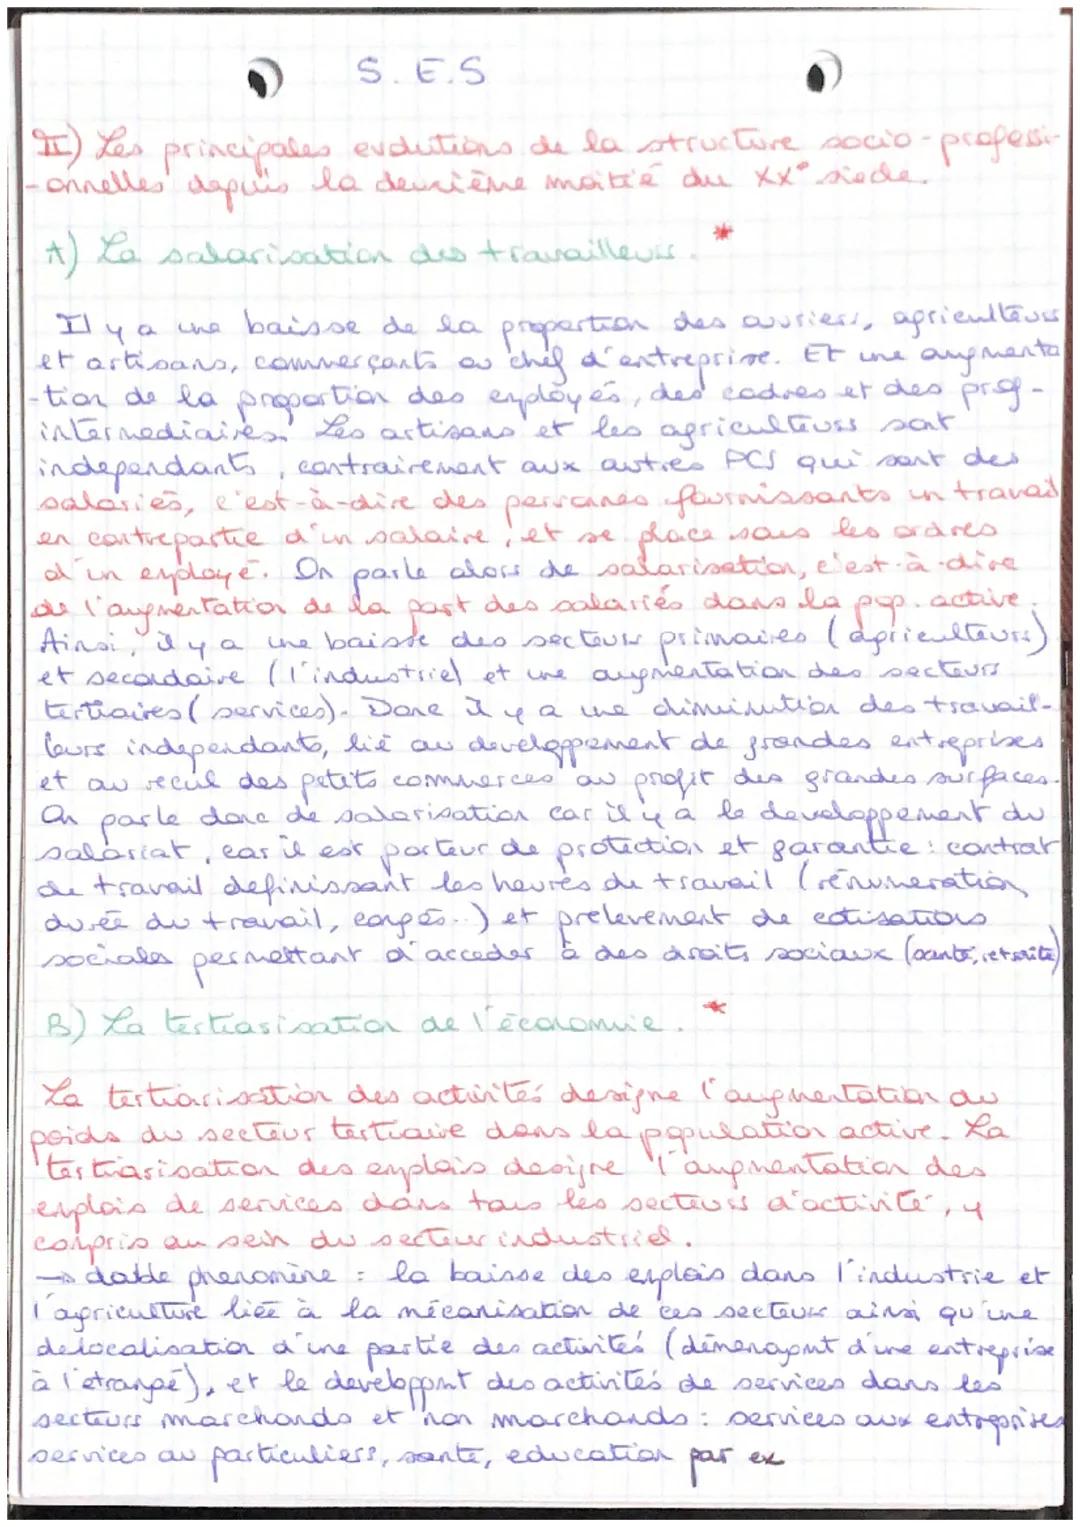 S.E.S
II) Les principales evolutions de la structure socio-professi-
-onnelles depuis la deuxième moitié du XX° siècle.
A) La salarisation des travailleurs. *
Il y a une baisse de la proportion des ouvriers, agriculteurs
et artisans, commerçants ou chef d'entreprise. Et une augmenta
-tion de la proportion des employés, des cadres et des prof-
intermediaires. Les artisans et les agriculteurs sont
independants, contrairement aux autres PCS qui sont des
salariés, c'est-à-dire des personnes fournissants un travail
en contrepartie d'un salaire, et se place sous les ordres
d'un employé. On parle alors de salarisation, c'est-à-dire
de l'augmentation de la part des salariés dans la pop. active.
Ainsi, il y a une baisse des secteurs primaires (agriculteurs)
et secondaire (l'industrie) et une augmentation des secteurs
tertiaires (services). Donc il y a une diminution des travail-
leurs independants, lié au developpement de grandes entreprises
et au recul des petits commerces au profit des grandes surfaces.
On parle donc de salarisation car il y a le developpement du
salariat, car il est porteur de protection et garantie : contrat
de travail definissant les heures de travail (rénumeration,
durée du travail, congés..) et prelevement de cotisations
sociales permettant d'acceder à des droits sociaux (santé, retraite)
B) La tertiarisation de l'économie. *
La tertiarisation des activités designe l'augmentation du
poids du secteur tertiaire dans la population active. La
tertiarisation des emplois designe l'augmentation des
emplois de services dans tous les secteurs d'activité, y
compris au sein du secteur industriel.
→ double phenomène : la baisse des emplois dans l'industrie et
l'agriculture liée à la mécanisation de ces secteurs ainsi qu'une
delocalisation d'une partie des activités (démenagmnt d'une entreprise
à l'etrangé), et le developpmnt des activités de services dans les
secteurs marchands et non marchands : services aux entreprises
services au particuliers, santé, education par ex